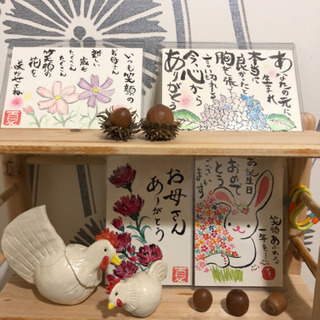 いつも笑顔の
お母さん
新しい歳も
たくさん
たくさん
笑顔の
花を
咲かせてね
夏
あなたの元に
生まれ
本当に
良かったと
胸を張って
言い切れる
今、心から
ありがとう
夏
お母さん
ありがとう
夏
お誕生日
おめでとう
ございます
笑顔あふれる
一年を…